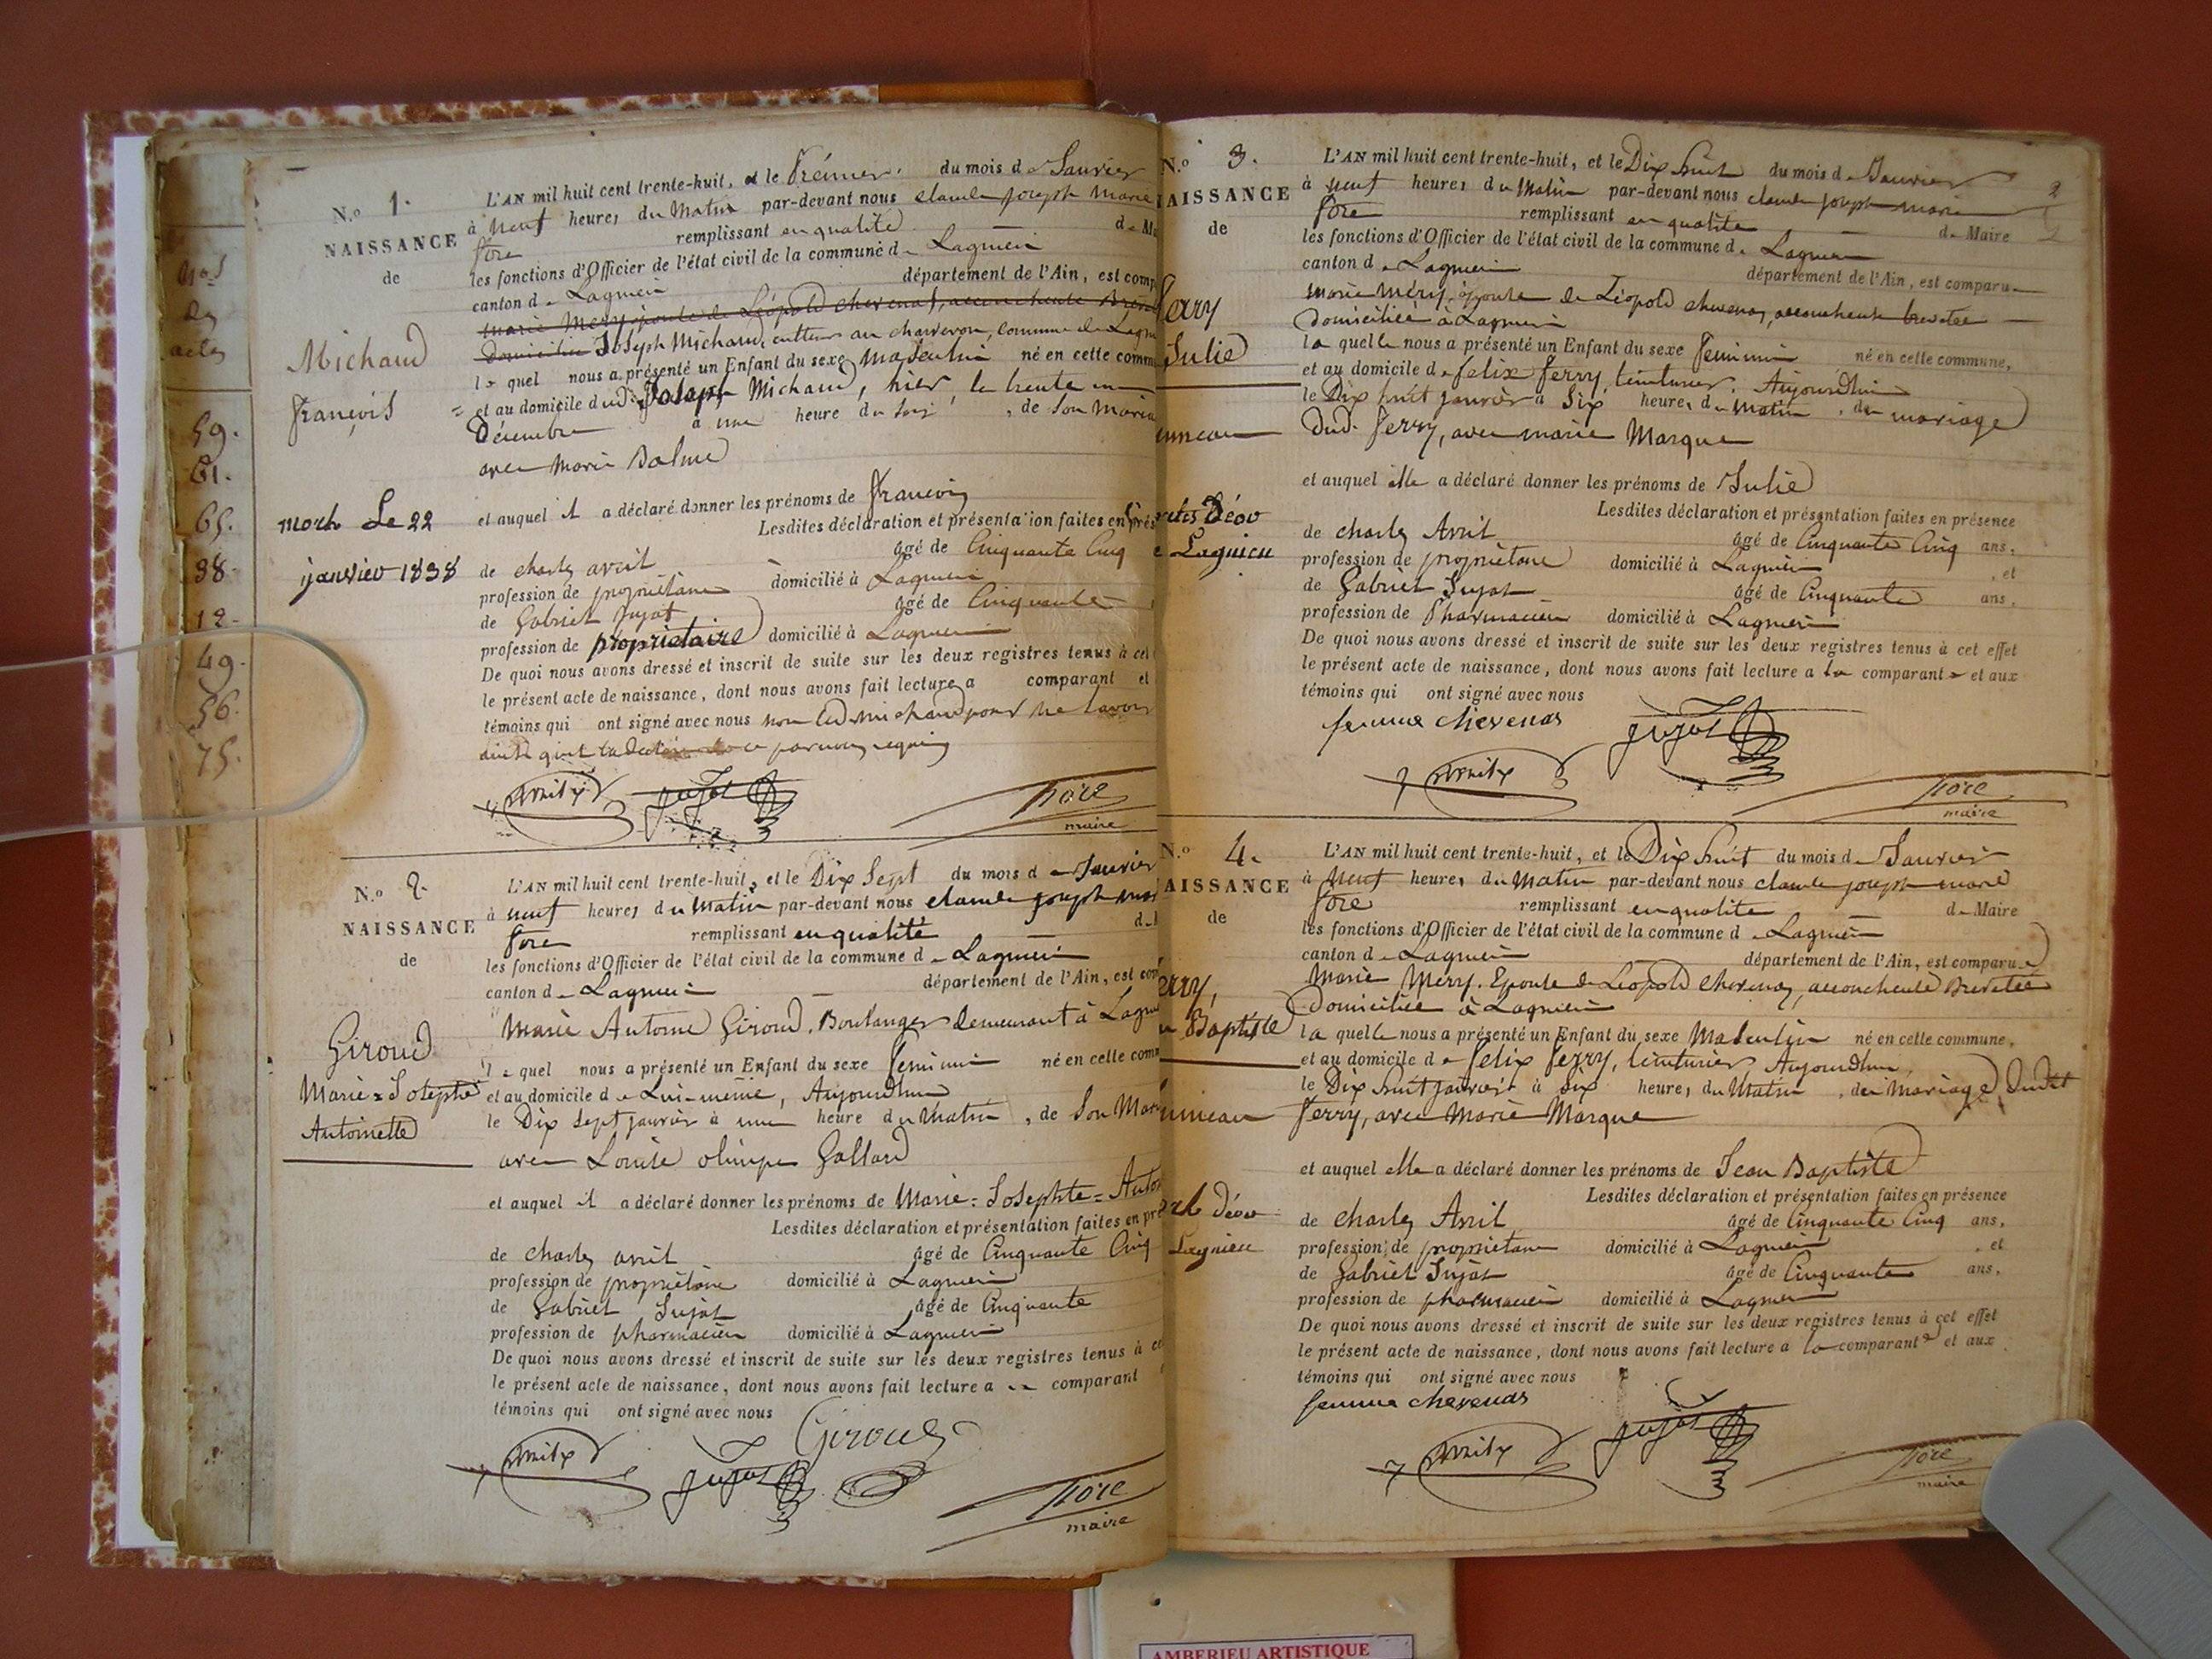 Nos
des
actes
59.
61.
65.
38.
12.
49.
56.
75.
N.º 1.
NAISSANCE
de
Michaud
françois
mort Le 22
janvier 1838
L'AN mil huit cent trente-huit, et le Prémier du mois de Janvier
à neuf heures du Matin par-devant nous claude joseph marie
fore remplissant en qualité de Ma
les fonctions d'Officier de l'état civil de la commune de Lagnieu
canton de Lagnieu département de l'Ain, est comp
marie Mery epouse de Léopold chevenas, accoucheuse Breve
domiciliée Joseph Michaud, cultteur au charveron, commune de Lagn
le quel nous a présenté un Enfant du sexe Masculin né en cette comm
et au domicile dud. Joseph Michaud, hier, le trente un
Décembre à une heure du soir, de son maria
avec Marie Balme
et auquel il a déclaré donner les prénoms de françois
Lesdites déclaration et présentation faites en prés
de charles avril âgé de Cinquante Cinq
profession de propriétaire domicilié à Lagnieu
de Gabriel Jujat âgé de Cinquante
profession de propriétaire domicilié à Lagnieu
De quoi nous avons dressé et inscrit de suite sur les deux registres tenus à cet
le présent acte de naissance, dont nous avons fait lecture a comparant et
témoins qui ont signé avec nous non led. michaud pour ne savoir
ainsi qu'il la de ce par nous requis
avril jujat fore
maire
N.º 2.
NAISSANCE
de
Giroud
Marie=Josephte
Antoinette
L'AN mil huit cent trente-huit, et le Dix Sept du mois de Janvier
à neuf heures du matin par-devant nous claude joseph mar
fore remplissant en qualité de
les fonctions d'Officier de l'état civil de la commune de Lagnieu
canton de Lagnieu département de l'Ain, est com
Marie Antoine Giroud, Boulanger demeurant à Lagn
le quel nous a présenté un Enfant du sexe feminin né en cette com
et au domicile de Lui-même, Aujourdhui
le Dix sept janvier à une heure du matin, de son Mar
avec Louise olimpe Galland
et auquel il a déclaré donner les prénoms de Marie=Josephte=Anto
Lesdites déclaration et présentation faites en pré
de charles avril âgé de Cinquante Cinq
profession de propriétaire domicilié à Lagnieu
de Gabriel Jujat âgé de Cinquante
profession de pharmacien domicilié à Lagnieu
De quoi nous avons dressé et inscrit de suite sur les deux registres tenus à ce
le présent acte de naissance, dont nous avons fait lecture a comparant
témoins qui ont signé avec nous
Giroud
avril jujat fore
maire
N.º 3.
AISSANCE
de
ferry
Julie
Lagnieu
2
L'AN mil huit cent trente-huit, et le Dix huit du mois de Janvier
à neuf heures du Matin par-devant nous claude joseph marie
fore remplissant en qualité de Maire
les fonctions d'Officier de l'état civil de la commune de Lagnieu
canton de Lagnieu département de l'Ain, est comparu
marie Méry, épouse de Léopold chevenas, accoucheuse brevetée
domiciliée à Lagnieu
la quelle nous a présenté un Enfant du sexe feminin né en cette commune,
et au domicile de felix ferry, teinturier, Aujourdhui
le Dix huit janvier à Six heures du matin, du mariage
Dud. ferry, avec marie Marque
et auquel elle a déclaré donner les prénoms de Julie
Lesdites déclaration et présentation faites en présence
de charles Avril âgé de Cinquante Cinq ans,
profession de propriétaire domicilié à Lagnieu, et
de Gabriel Jujat âgé de Cinquante ans,
profession de Pharmacien domicilié à Lagnieu
De quoi nous avons dressé et inscrit de suite sur les deux registres tenus à cet effet
le présent acte de naissance, dont nous avons fait lecture a la comparante et aux
témoins qui ont signé avec nous
femme chevenas jujat
avril fore
maire
N.º 4.
AISSANCE
de
erry,
n Baptiste
Lagnieu
L'AN mil huit cent trente-huit, et le Dix huit du mois de Janvier
à neuf heures du matin par-devant nous claude joseph marie
fore remplissant en qualité de Maire
les fonctions d'Officier de l'état civil de la commune de Lagnieu
canton de Lagnieu département de l'Ain, est comparue
Marie Mery, Epouse de Léopold chevenas, accoucheuse Brevetée
Domiciliée à Lagnieu
la quelle nous a présenté un Enfant du sexe Masculin né en cette commune,
et au domicile de felix ferry, teinturier, Aujourdhui
le Dix huit janvier à Six heures du Matin, du Mariage Dudit
ferry, avec Marie Marque
et auquel elle a déclaré donner les prénoms de Jean Baptiste
Lesdites déclaration et présentation faites en présence
de charles Avril âgé de Cinquante Cinq ans,
profession de propriétaire domicilié à Lagnieu, et
de Gabriel Jujat âgé de Cinquante ans,
profession de pharmacien domicilié à Lagnieu
De quoi nous avons dressé et inscrit de suite sur les deux registres tenus à cet effet
le présent acte de naissance, dont nous avons fait lecture a la comparante et aux
témoins qui ont signé avec nous
femme chevenas
avril jujat fore
maire
AMBERIEU ARTISTIQUE